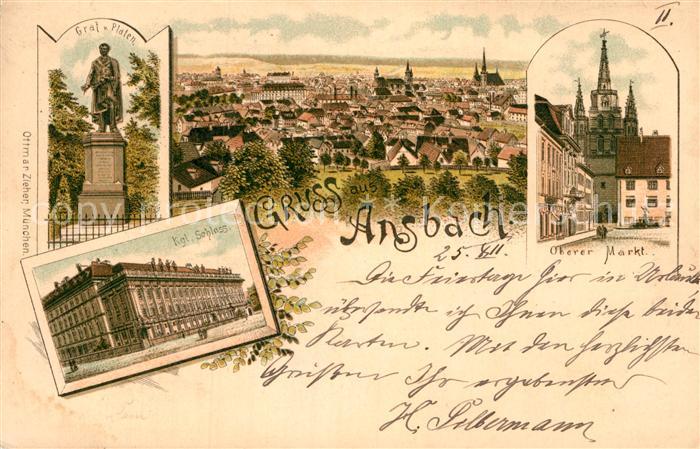 II
Graf v. Platen.
Ottmar Zieher, München.
Kgl. Schloss.
Oberer Markt.
Gruss aus
Ansbach
25. XII.
Die Feiertage hier in Urlaub
übersende ich Ihnen diese beiden
Karten. Mit den herzlichsten
Grüßen Ihr ergebenster
H. Silbermann